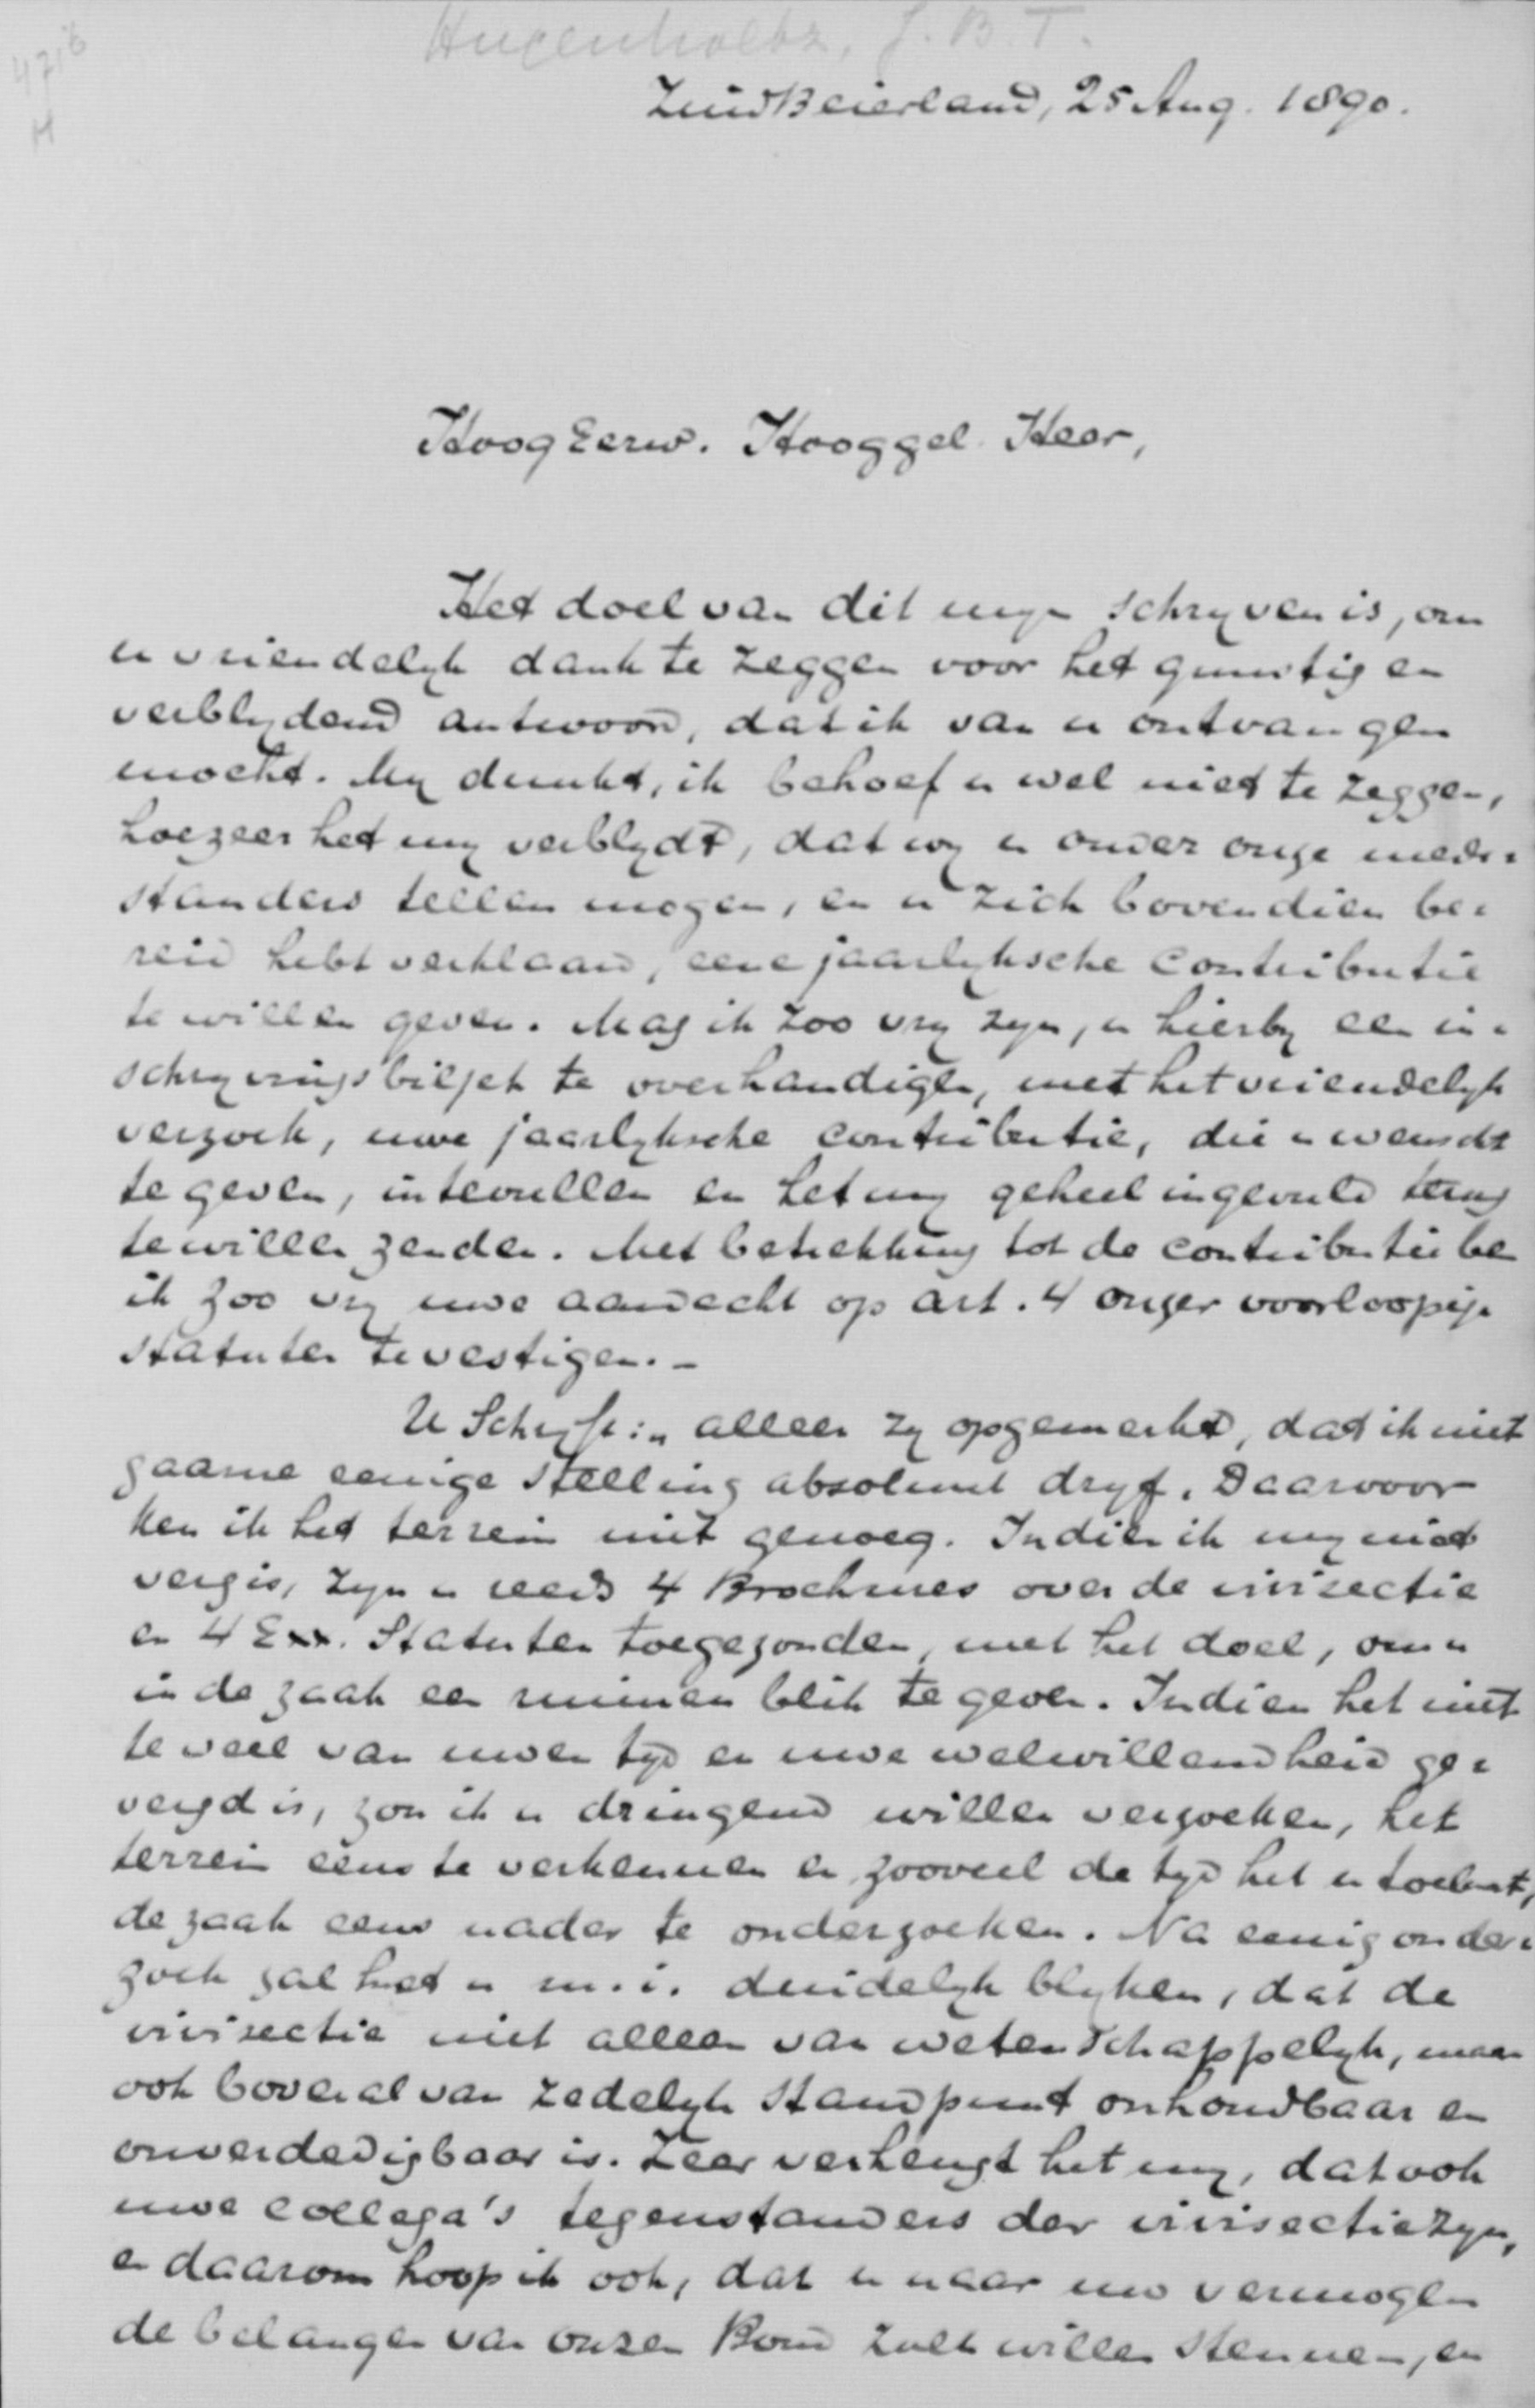 Hugenholtz, J. B. T.
471b
H
ZuidBeierland, 25 Aug. 1890.
HoogEerw. Hooggel. Heer,
Het doel van dit mijn schrijven is, om
u vriendelijk dank te zeggen voor het gunstig en
verblijdend antwoord, dat ik van u ontvangen
mocht. Mij dunkt, ik behoef u wel niet te zeggen,
hoezeer het mij verblijdt, dat wij u onder onze mede-
standers tellen mogen, en u zich bovendien be-
reid hebt verklaard, eene jaarlijksche contributie
te willen geven. Mag ik zoo vrij zijn, u hierbij een in-
schrijvingsbiljet te overhandigen, met het vriendelijk
verzoek, uwe jaarlijksche contributie, die u wenscht
te geven, in te vullen en het mij geheel ingevuld terug
te willen zenden. Met betrekking tot de contributie be
ik zoo vrij uwe aandacht op art. 4 onzer voorloopige
statuten te vestigen. -
U schrijft: "alleen zij opgemerkt, dat ik niet
gaarne eenige stelling absoluut drijf. Daarvoor
ken ik het terrein niet genoeg. Indien ik mij niet
vergis, zijn u reeds 4 Brochures over de vivisectie
en 4 Exx. Statuten toegezonden, met het doel, om u
in de zaak een ruimen blik te geven. Indien het niet
te veel van uwen tijd en uwe welwillendheid ge-
vergd is, zou ik u dringend willen verzoeken, het
terrein eens te verkennen en, zooveel de tijd het u toelaat,
de zaak eens nader te onderzoeken. Na eenig onder-
zoek zal het u m.i. duidelijk blijken, dat de
vivisectie niet alleen van wetenschappelijk, maar
ook bovenal van zedelijk standpunt onhoudbaar en
onverdedigbaar is. Zeer verheugt het mij, dat ook
uwe collega's tegenstanders der vivisectie zijn,
en daarom hoop ik ook, dat u naar uw vermogen
de belangen van onzen Bond zult willen steunen, en